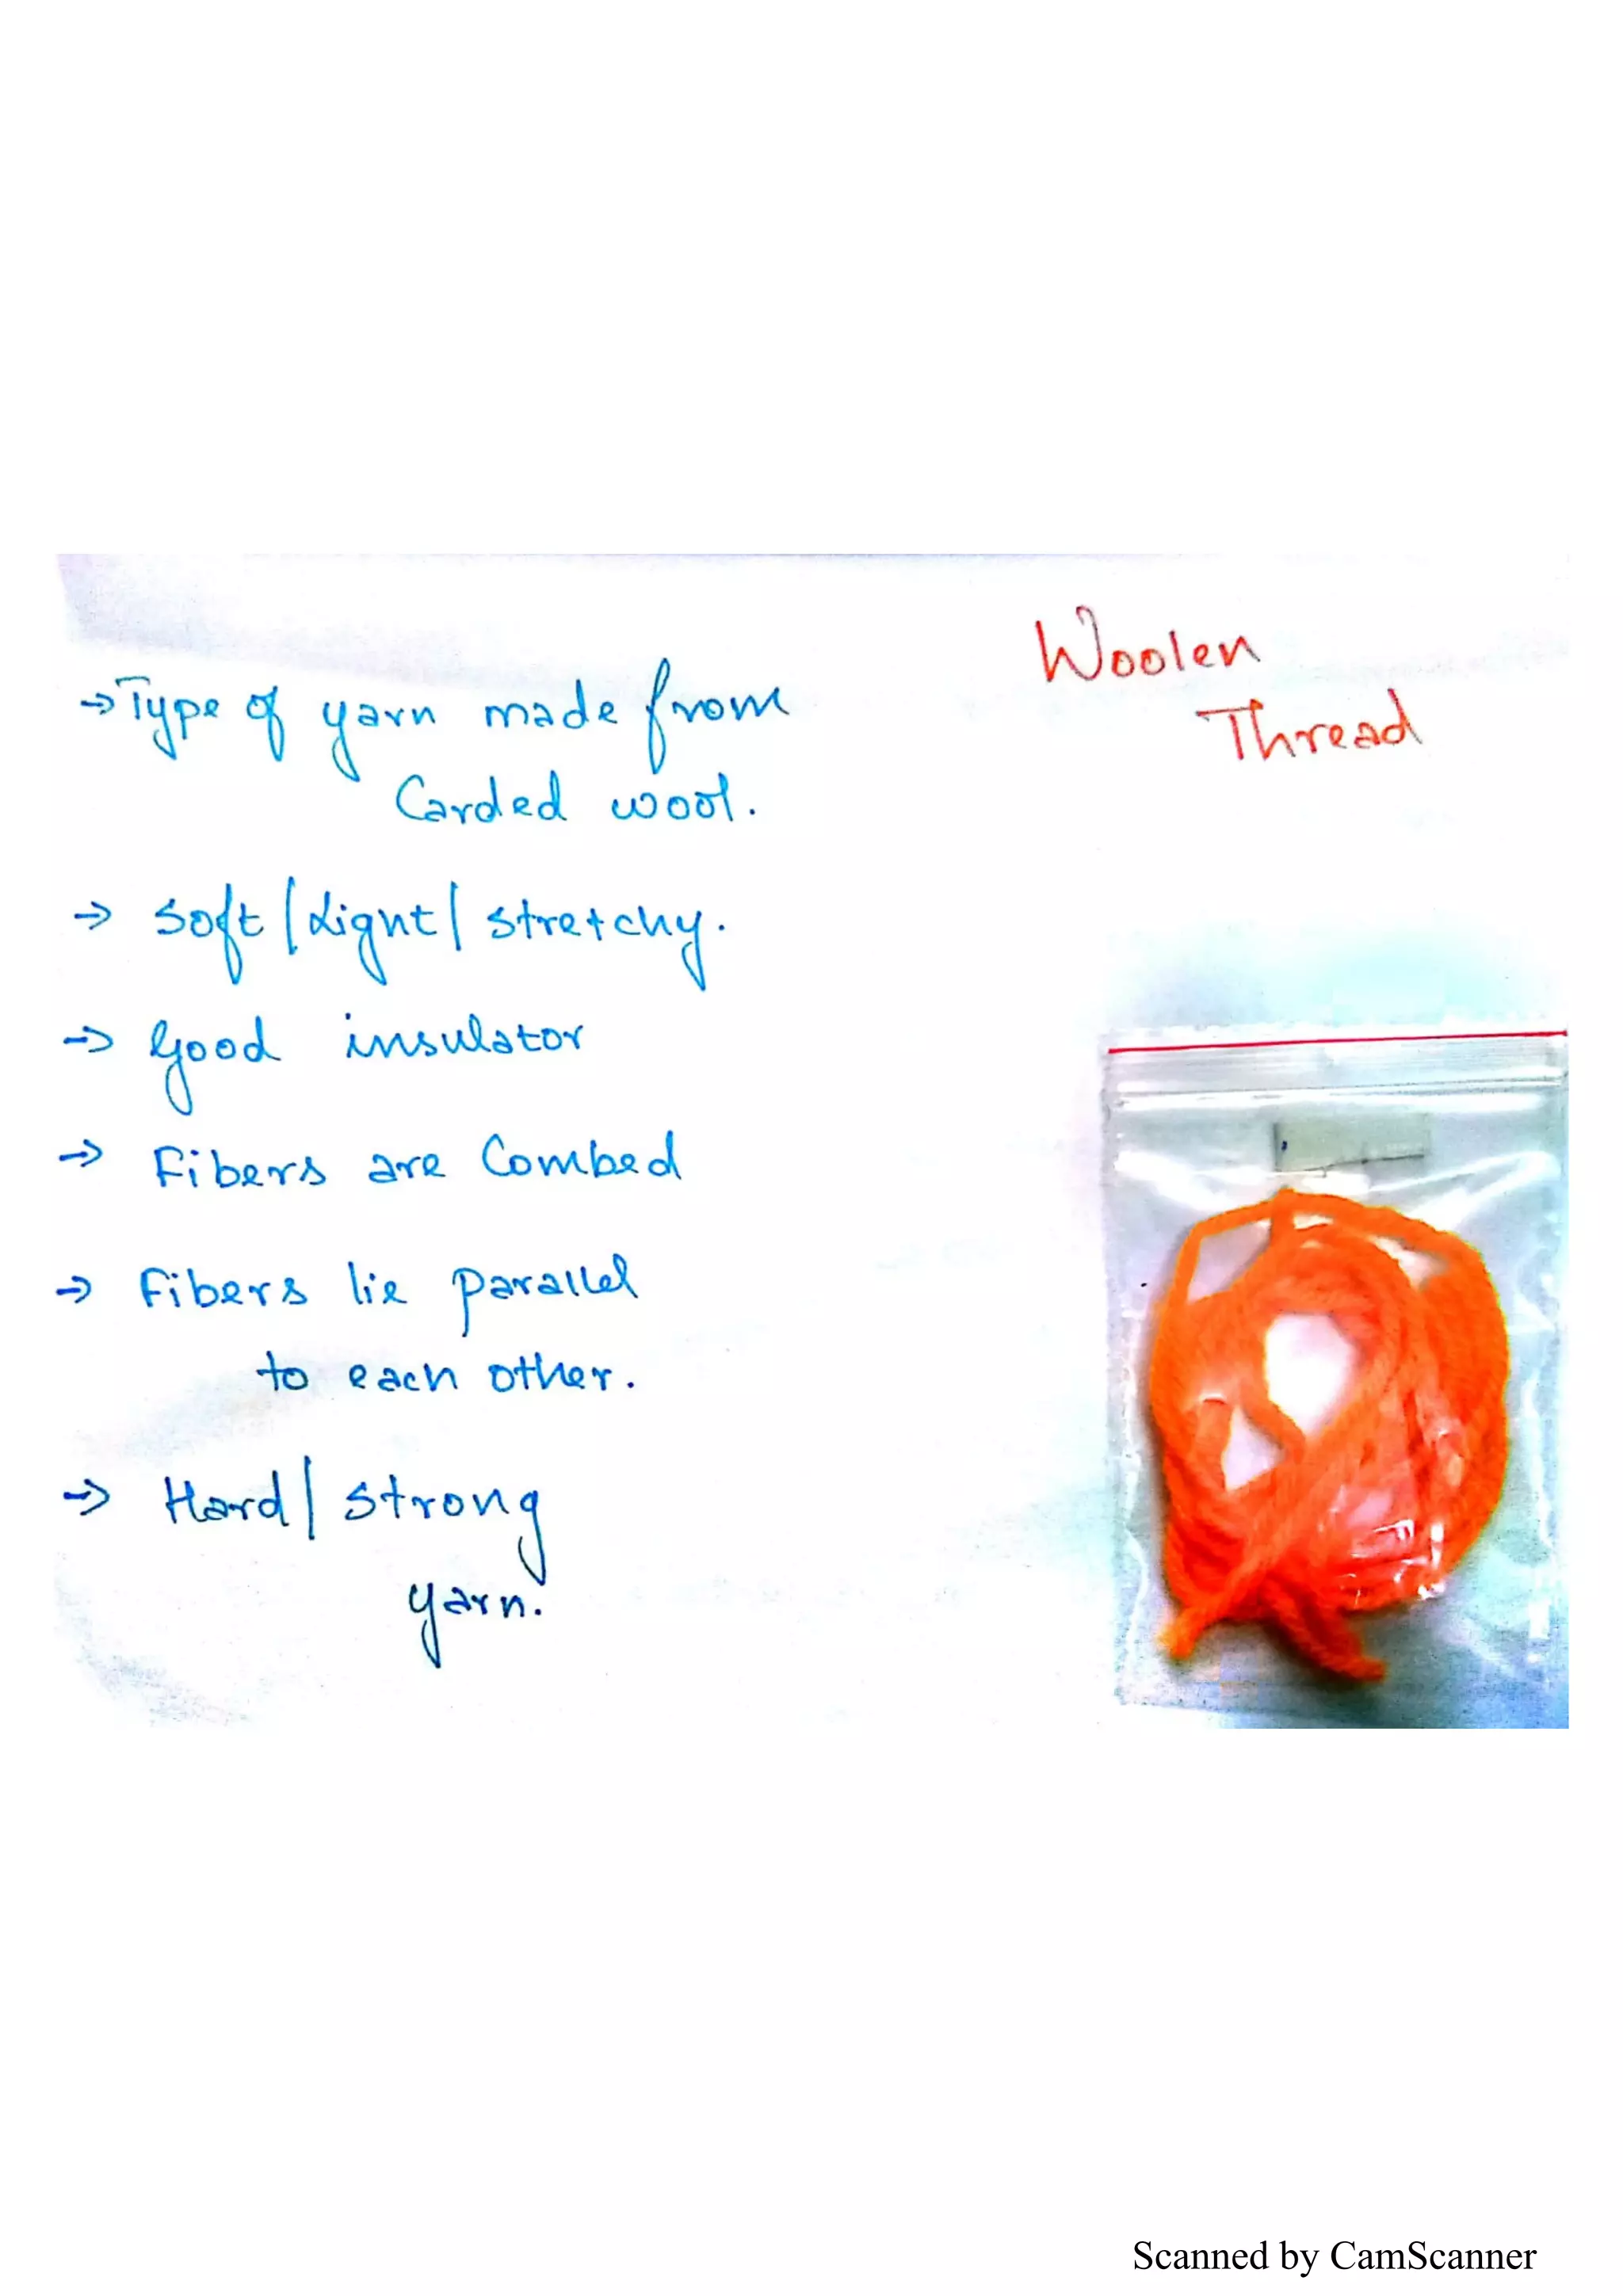 Woolen
Thread
→ Type of yarn made from
Carded wool.
→ Soft / Light / stretchy.
→ Good insulator
→ Fibers are Combed
→ Fibers lie parallel
to each other.
→ Hard / strong
yarn.
Scanned by CamScanner